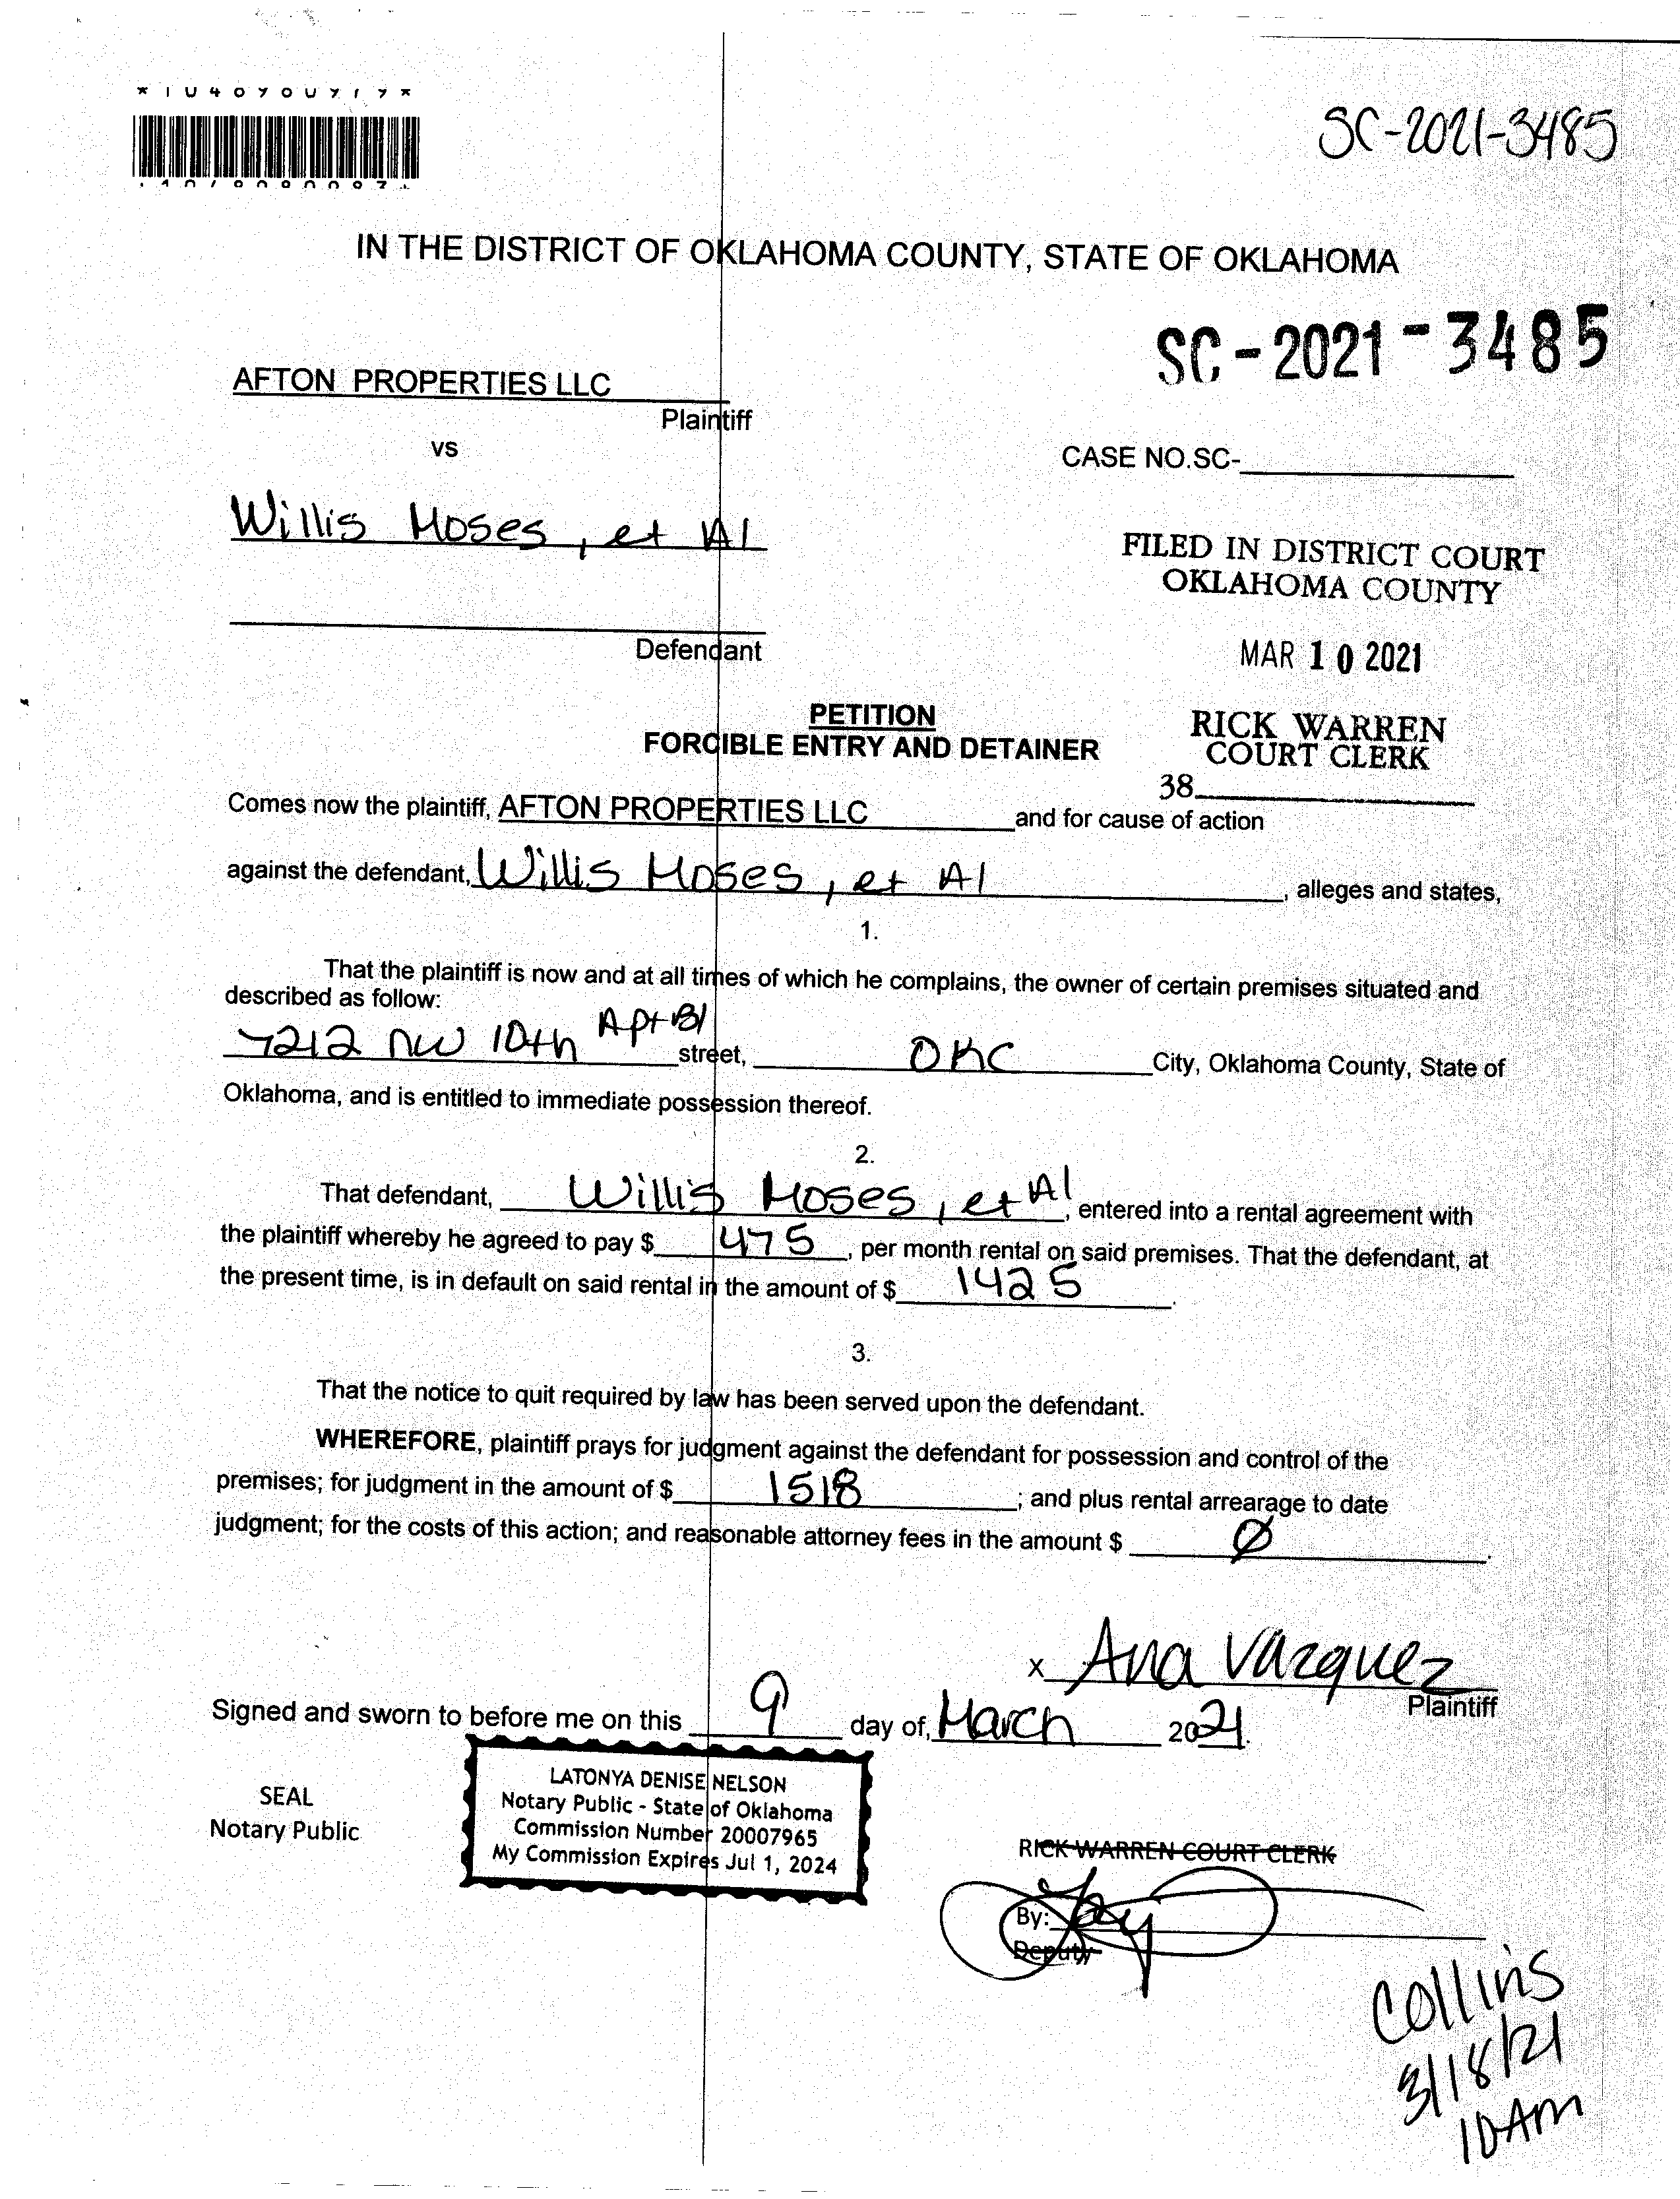 SC-2021-3485
IN THE DISTRICT OF OKLAHOMA COUNTY, STATE OF OKLAHOMA
SC-2021-3485
AFTON PROPERTIES LLC
Plaintiff
vs
CASE NO.SC-
Willis Moses, et Al
FILED IN DISTRICT COURT
OKLAHOMA COUNTY
Defendant
MAR 10 2021
PETITION
FORCIBLE ENTRY AND DETAINER
RICK WARREN
COURT CLERK
38
Comes now the plaintiff, AFTON PROPERTIES LLC and for cause of action
against the defendant, Willis Moses, et Al, alleges and states,
1.
That the plaintiff is now and at all times of which he complains, the owner of certain premises situated and
described as follow:
7212 NW 10th Apt B1 street, OKC City, Oklahoma County, State of
Oklahoma, and is entitled to immediate possession thereof.
2.
That defendant, Willis Moses, et Al, entered into a rental agreement with
the plaintiff whereby he agreed to pay $ 475, per month rental on said premises. That the defendant, at
the present time, is in default on said rental in the amount of $ 1425.
3.
That the notice to quit required by law has been served upon the defendant.
WHEREFORE, plaintiff prays for judgment against the defendant for possession and control of the
premises; for judgment in the amount of $ 1518; and plus rental arrearage to date
judgment; for the costs of this action; and reasonable attorney fees in the amount $ Ø.
x Ana Vazquez
Plaintiff
Signed and sworn to before me on this 9 day of, March 2021.
SEAL
Notary Public
LATONYA DENISE NELSON
Notary Public - State of Oklahoma
Commission Number 20007965
My Commission Expires Jul 1, 2024
RICK WARREN COURT CLERK
By:
Deputy
Collins
3/18/21
10AM